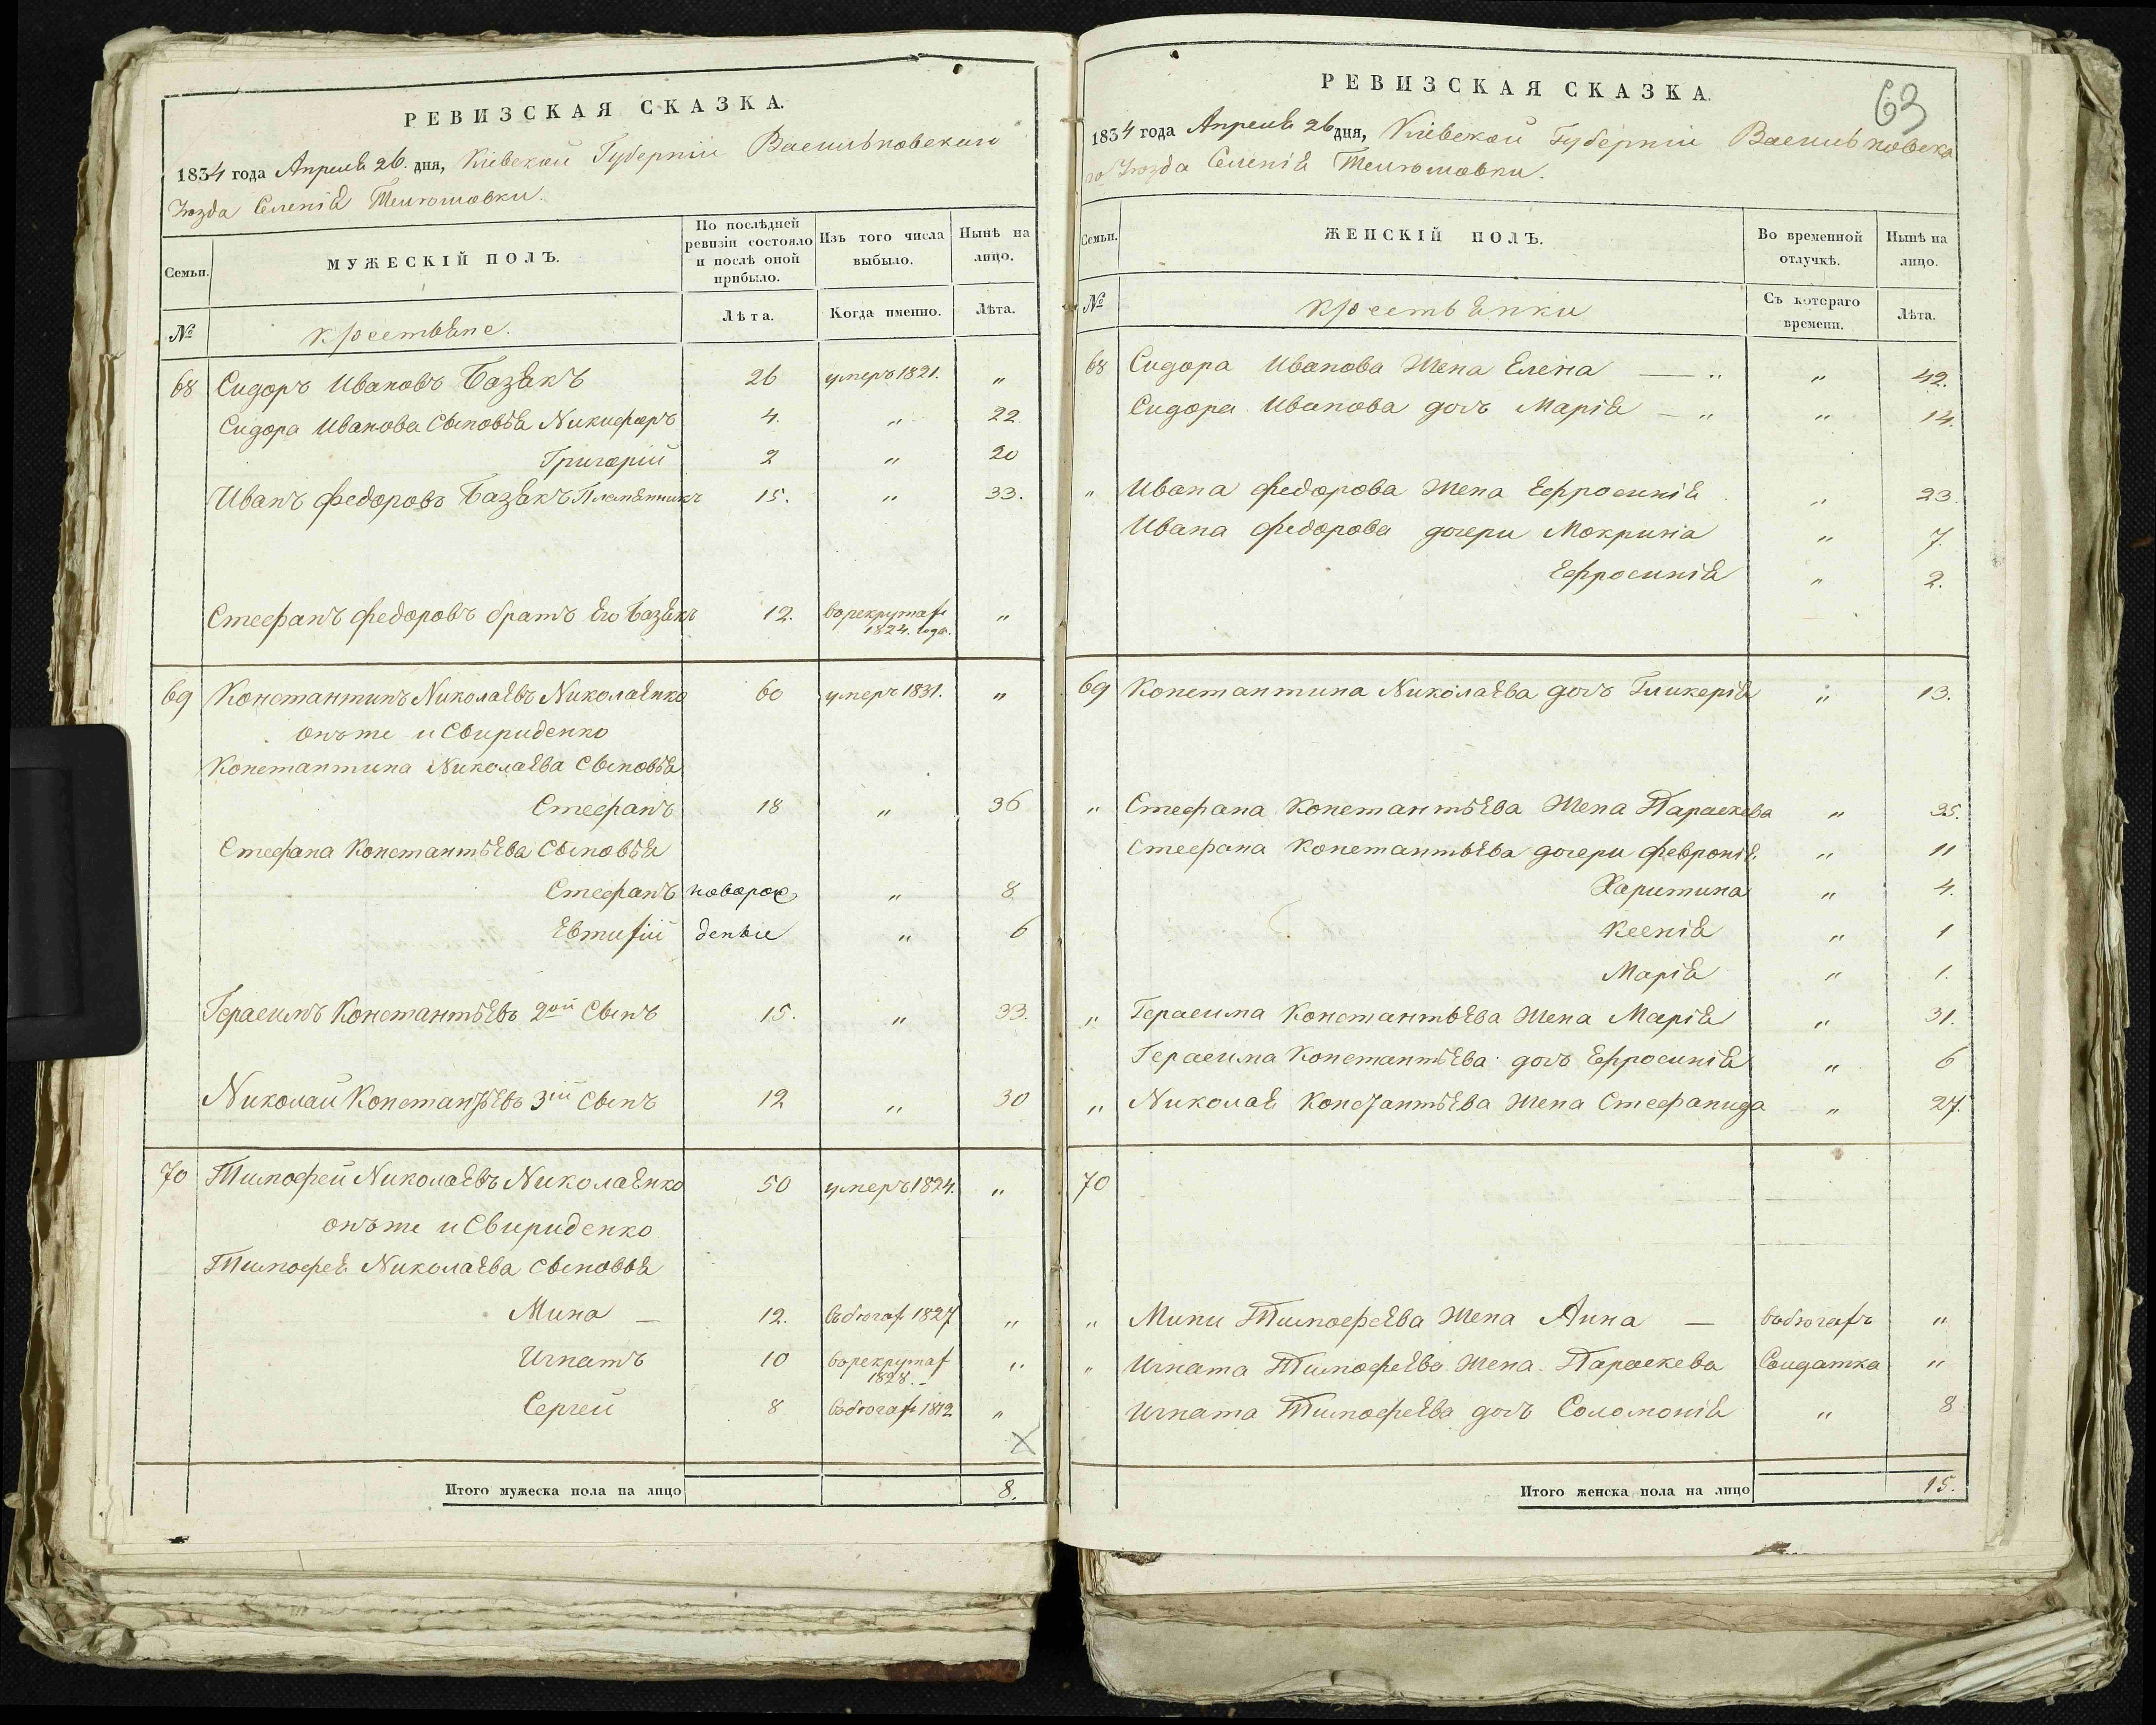 РЕВИЗСКАЯ СКАЗКА.
1834 года Апреля 26. дня, Кіевской Губерніи Васильковскаго
Уѣзда Селенія
МУЖЕСКІЙ ПОЛЪ.
Семьи.
По послѣдней ревизіи состояло и послѣ оной прибыло.
Изъ того числа выбыло.
Нынѣ на лицо.
№
крестьяне.
Лѣта.
Когда именно.
Лѣта.
68 Сидоръ Ивановъ Базякъ 26 умеръ 1821. „
Сидора Иванова сыновья Никифоръ 4. „ 22
Григорій 2 „ 20
Иванъ Федоровъ Базякъ Племянникъ 15. „ 33.
Стефанъ Федоровъ братъ Его Базякъ 12. во рекрутах „
1824. года.
69 Константинъ Николаевъ Николаенко 60 умеръ 1831. „
онъ же и Свириденко
Константина Николаева сыновья
Стефанъ 18 „ 36
Стефана Константьева сыновья
Стефанъ новорож „ 8.
Евтифій денные „ 6
Герасимъ Константьевъ 2ой сынъ 15. „ 33.
Николай Константьевъ 3ій сынъ 12 „ 30
70 Тимофей Николаевъ Николаенко 50 умеръ 1824. „
онъ же и Свириденко
Тимофея Николаева сыновья
Мина — 12. въ бѣгах 1827 „
Игнатъ 10 во рекрутах „
1828. –
Сергей 8 въ бѣгах „
Итого мужеска пола на лицо 8.
63
РЕВИЗСКАЯ СКАЗКА.
1834 года Апреля 26 дня, Кіевской Губерніи Васильковска
го Уѣзда Селенія
Семьи.
ЖЕНСКІЙ ПОЛЪ.
Во временной отлучкѣ.
Нынѣ на лицо.
№
крестьянки
Съ котораго времени.
Лѣта.
68 Сидора Иванова жена Елена — „ „ 42.
Сидора Иванова дочь Марія — „ „ 14.
„ Ивана Федорова жена Ефросинія „ 23.
Ивана Федорова дочери Мокрина „ 7.
Ефросинія „ 2.
69 Константина Николаева дочь Гликерія „ 13.
„ Стефана Константьева жена Параскева „ 35.
Стефана Константьева дочери Февронія „ 11
Харитина „ 4.
Ксенія „ 1
Марія „ 1.
„ Герасима Константьева жена Марія „ 31.
Герасима Константьева дочь Ефросинія „ 6
„ Николая Константьева жена Стефанида „ 27.
70
„ Мины Тимофеева жена Анна — въ бѣгахъ „
„ Игната Тимофеева жена Параскева Солдатка „
Игната Тимофеева дочь Соломонія „ 8
Итого женска пола на лицо 15.